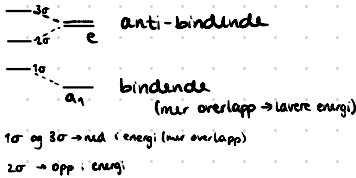 3σ
anti-bindende
2σ
e
1σ
bindende
a₁
(mer overlapp → lavere energi)
1σ og 3σ → ned i energi (mer overlapp)
2σ → opp i energi